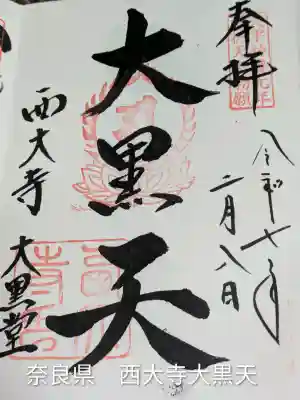 奉拝
令和七年
二月八日
大黒天
西大寺
大黒堂
奈良県 西大寺大黒天